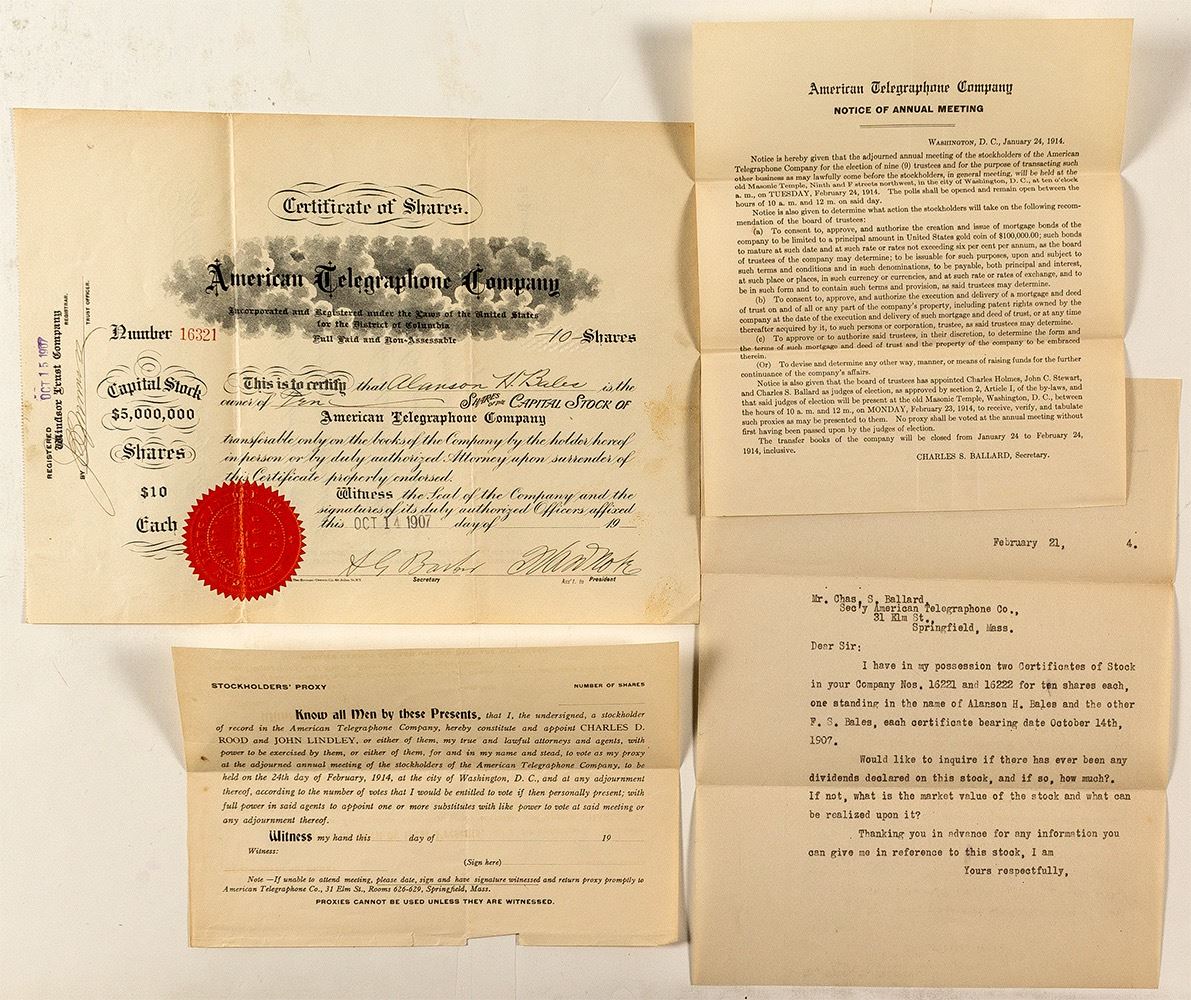 Certificate of Shares.
American Telegraphone Company
Incorporated and Registered under the Laws of the United States
for the District of Columbia
Full Paid and Non-Assessable
Number 16321
10 Shares
REGISTERED OCT 15 1907
Windsor Trust Company
REGISTRAR,
BY
TRUST OFFICER.
Capital Stock
$5,000,000
Shares
$10
Each
This is to certify that Alanson H. Bales is the
owner of Ten SHARES OF THE CAPITAL STOCK OF
American Telegraphone Company
transferable only on the books of the Company by the holder hereof
in person or by duly authorized Attorney upon surrender of
this Certificate properly endorsed.
Witness the Seal of the Company and the
signatures of its duly authorized Officers affixed
this OCT 14 1907 day of 19
Secretary
Ass't. to President
American Telegraphone Company
NOTICE OF ANNUAL MEETING
WASHINGTON, D. C., January 24, 1914.
Notice is hereby given that the adjourned annual meeting of the stockholders of the American
Telegraphone Company for the election of nine (9) trustees and for the purpose of transacting such
other business as may lawfully come before the stockholders, in general meeting, will be held at the
old Masonic Temple, Ninth and F streets northwest, in the city of Washington, D. C., at ten o'clock
a. m., on TUESDAY, February 24, 1914. The polls shall be opened and remain open between the
hours of 10 a. m. and 12 m. on said day.
Notice is also given to determine what action the stockholders will take on the following recom-
mendation of the board of trustees:
(a) To consent to, approve, and authorize the creation and issue of mortgage bonds of the
company to be limited to a principal amount in United States gold coin of $100,000.00; such bonds
to mature at such date and at such rate or rates not exceeding six per cent per annum, as the board
of trustees of the company may determine; to be issuable for such purposes, upon and subject to
such terms and conditions and in such denominations, to be payable, both principal and interest,
at such place or places, in such currency or currencies, and at such rate or rates of exchange, and to
be in such form and to contain such terms and provision, as said trustees may determine.
(b) To consent to, approve, and authorize the execution and delivery of a mortgage and deed
of trust on and of all or any part of the company's property, including patent rights owned by the
company at the date of the execution and delivery of such mortgage and deed of trust, or at any time
thereafter acquired by it, to such persons or corporation, trustee, as said trustees may determine.
(c) To approve or to authorize said trustees, in their discretion, to determine the form and
the terms of such mortgage and deed of trust and the property of the company to be embraced
therein.
(Or) To devise and determine any other way, manner, or means of raising funds for the further
continuance of the company's affairs.
Notice is also given that the board of trustees has appointed Charles Holmes, John C. Stewart,
and Charles S. Ballard as judges of election, as approved by section 2, Article I, of the by-laws, and
that said judges of election will be present at the old Masonic Temple, Washington, D. C., between
the hours of 10 a. m. and 12 m., on MONDAY, February 23, 1914, to receive, verify, and tabulate
such proxies as may be presented to them. No proxy shall be voted at the annual meeting without
first having been passed upon by the judges of election.
The transfer books of the company will be closed from January 24 to February 24,
1914, inclusive.
CHARLES S. BALLARD, Secretary.
STOCKHOLDERS' PROXY NUMBER OF SHARES
Know all Men by these Presents, that I, the undersigned, a stockholder
of record in the American Telegraphone Company, hereby constitute and appoint CHARLES D.
ROOD and JOHN LINDLEY, or either of them, my true and lawful attorneys and agents, with
power to be exercised by them, or either of them, for and in my name and stead, to vote as my proxy
at the adjourned annual meeting of the stockholders of the American Telegraphone Company, to be
held on the 24th day of February, 1914, at the city of Washington, D. C., and at any adjournment
thereof, according to the number of votes that I would be entitled to vote if then personally present; with
full power in said agents to appoint one or more substitutes with like power to vote at said meeting or
any adjournment thereof.
Witness my hand this day of 19
Witness:
(Sign here)
Note.—If unable to attend meeting, please date, sign and have signature witnessed and return proxy promptly to
American Telegraphone Co., 31 Elm St., Rooms 626-629, Springfield, Mass.
PROXIES CANNOT BE USED UNLESS THEY ARE WITNESSED.
February 21, 4.
Mr. Chas. S. Ballard,
Sec'y American Telegraphone Co.,
31 Elm St.,
Springfield, Mass.
Dear Sir:
I have in my possession two Certificates of Stock
in your Company Nos. 16221 and 16222 for ten shares each,
one standing in the name of Alanson H. Bales and the other
F. S. Bales, each certificate bearing date October 14th,
1907.
Would like to inquire if there has ever been any
dividends declared on this stock, and if so, how much?.
If not, what is the market value of the stock and what can
be realized upon it?
Thanking you in advance for any information you
can give me in reference to this stock, I am
Yours respectfully,